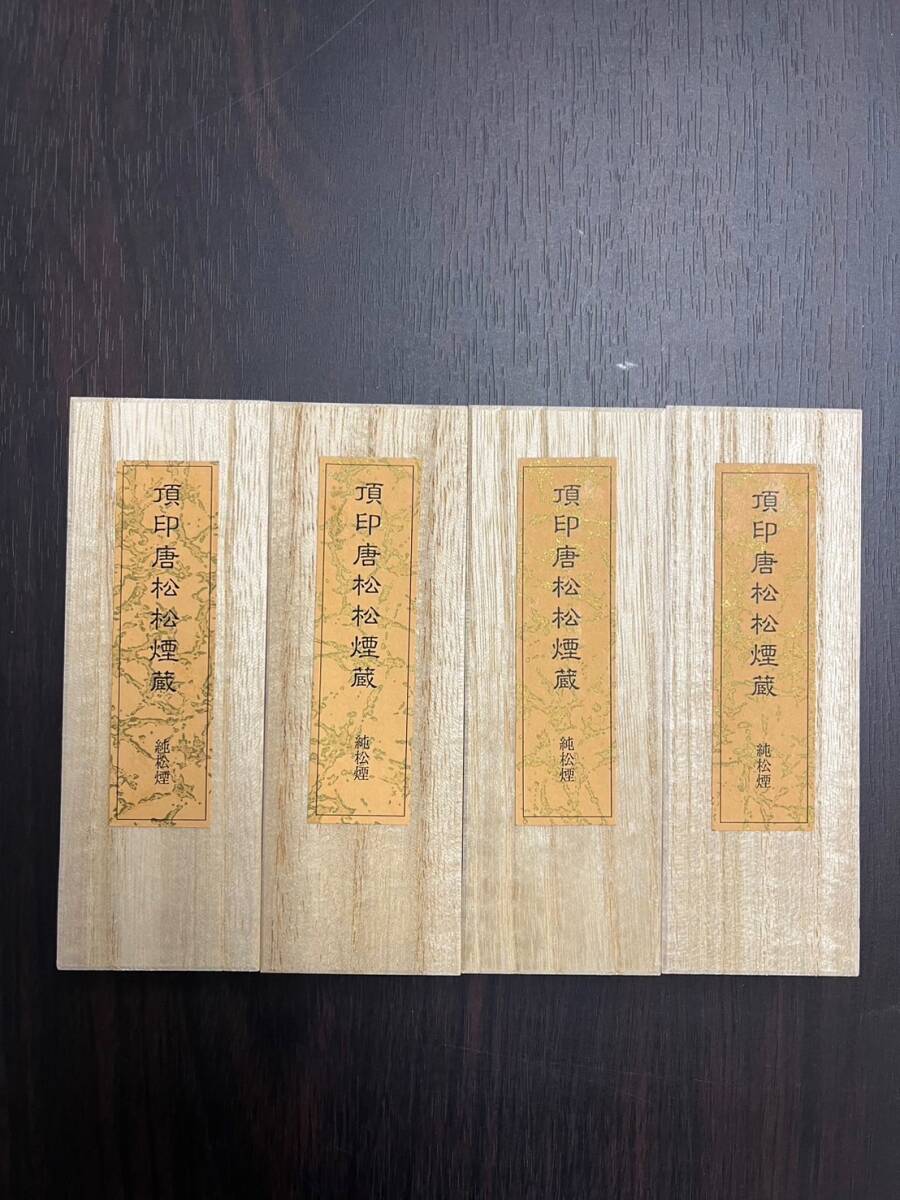 頂印唐松松煙蔵
純松煙
頂印唐松松煙蔵
純松煙
頂印唐松松煙蔵
純松煙
頂印唐松松煙蔵
純松煙